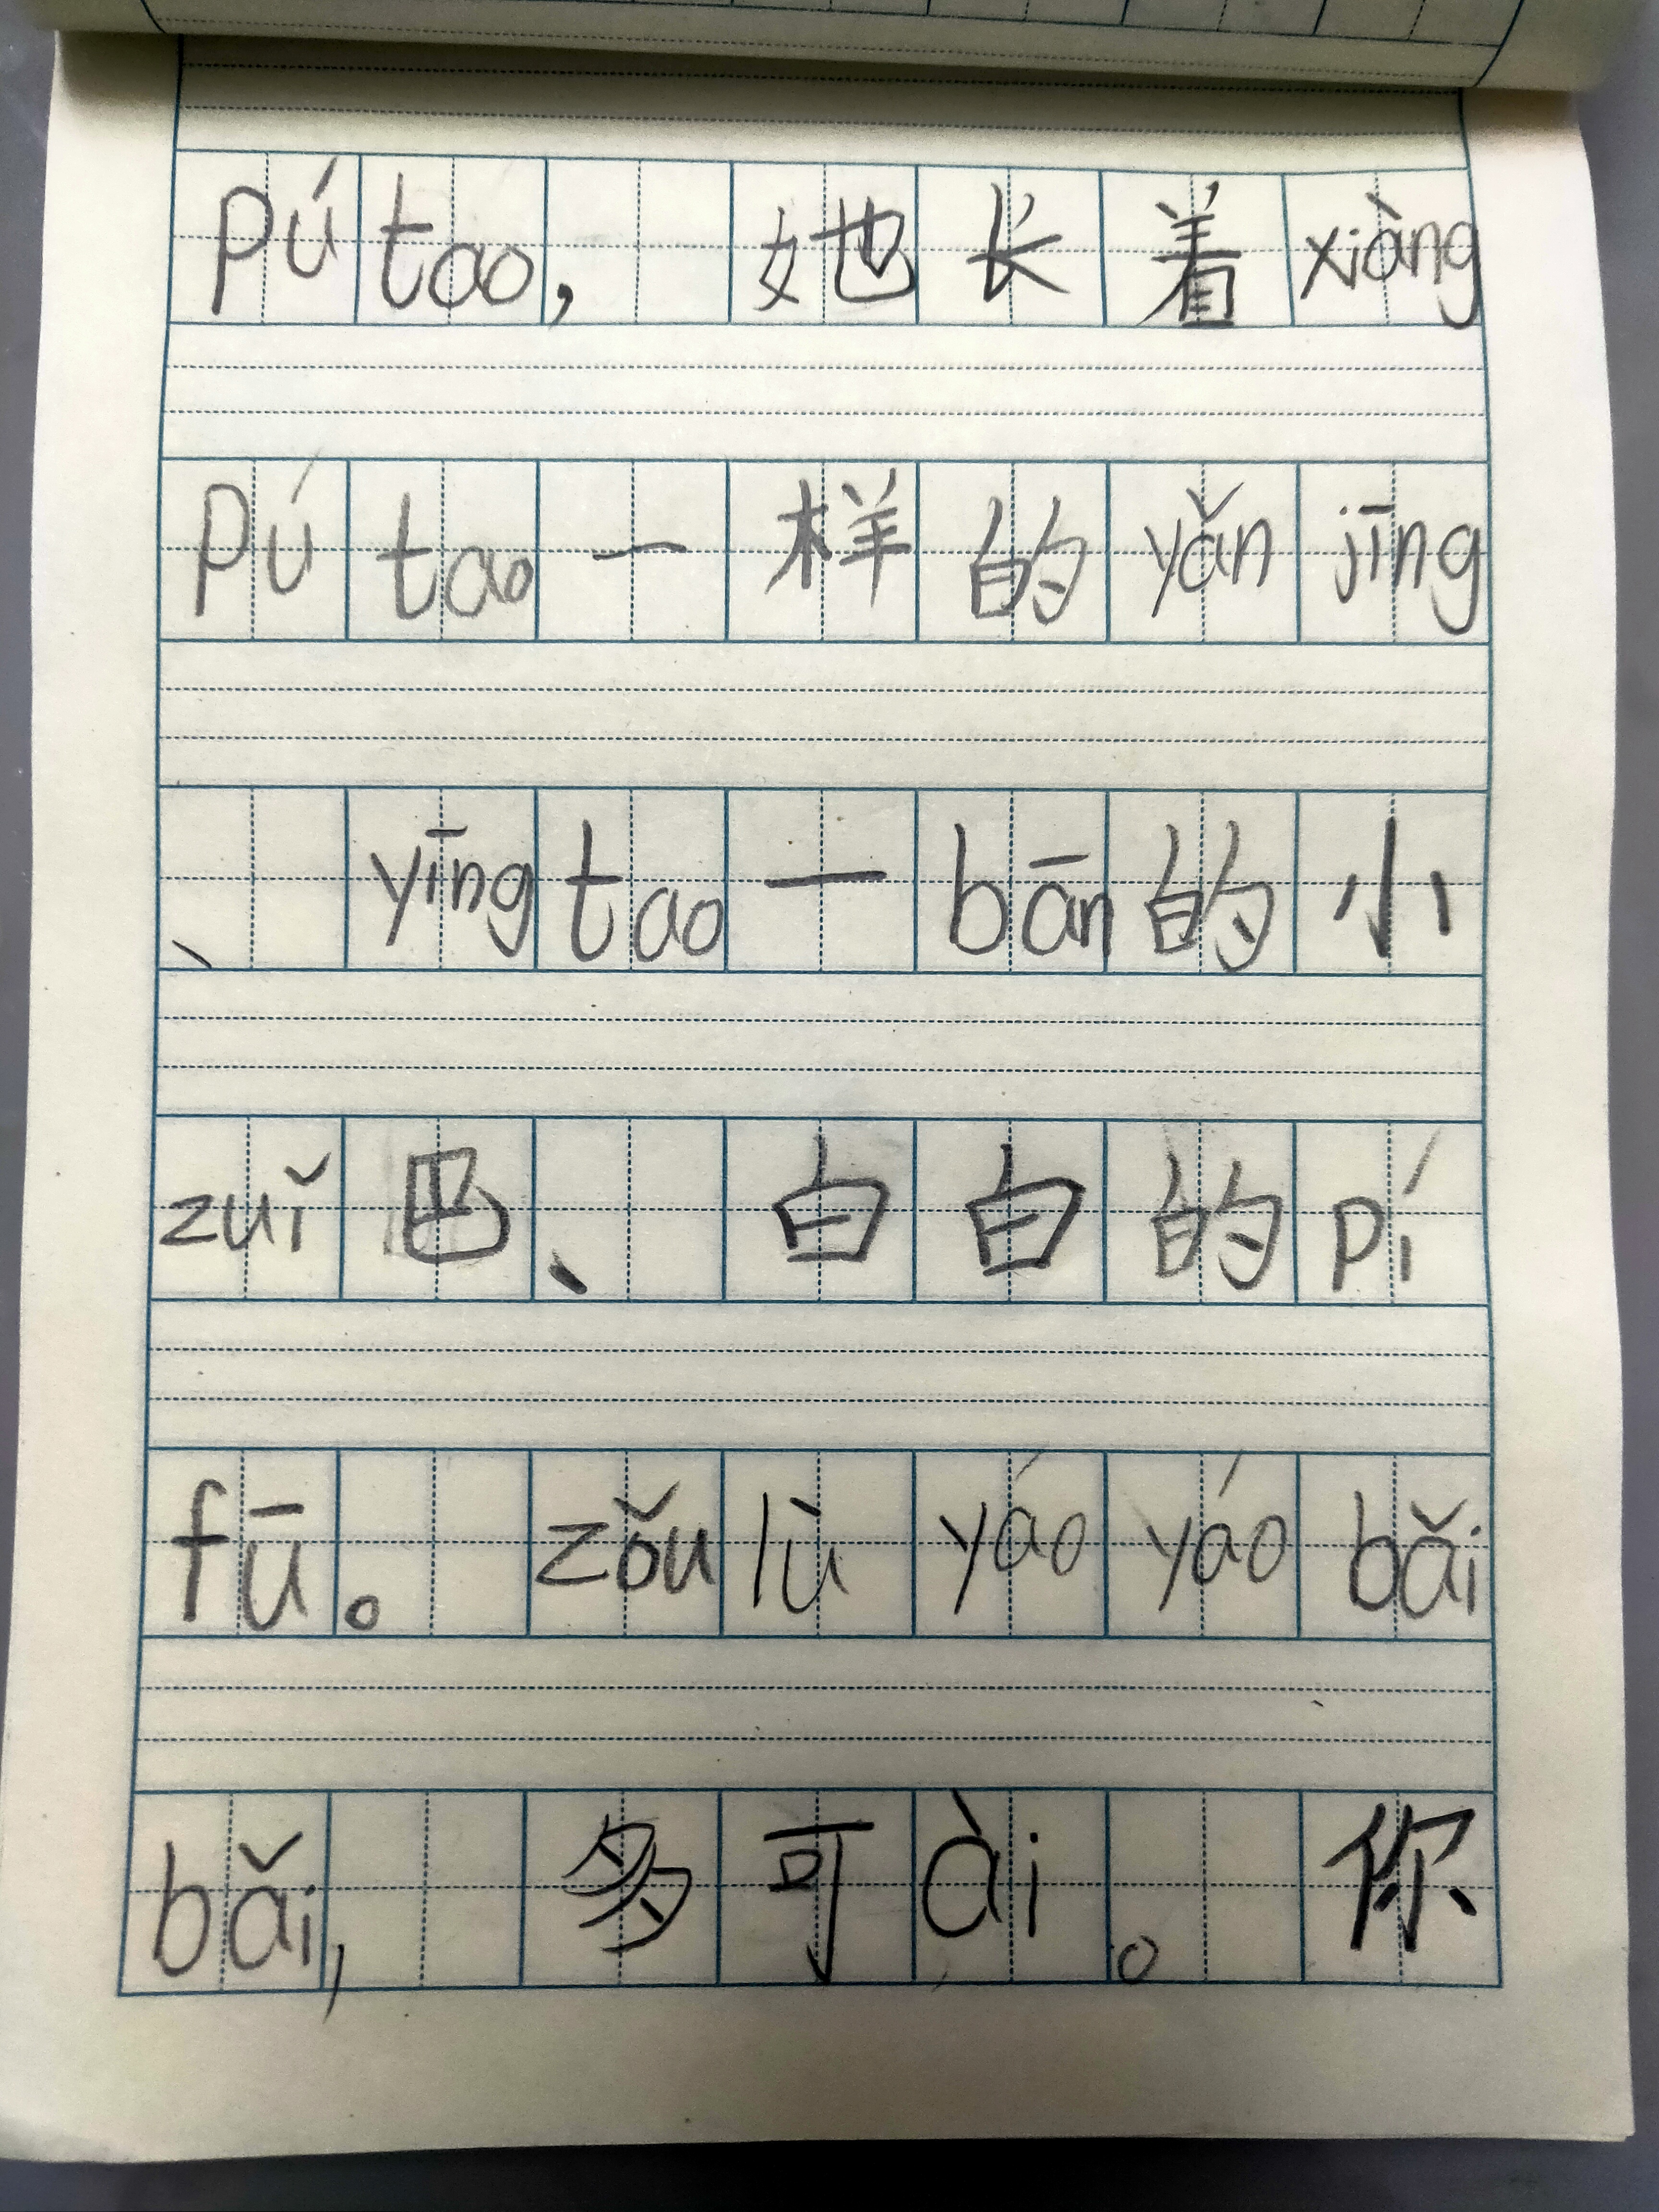 pú tao, 她长着 xiàng
pú tao 一样的 yǎn jīng
、yīng tao 一 bān 的小
zuǐ 巴、白白的 pí
fū。zǒu lù yáo yáo bǎi
bǎi, 多可 ài。你